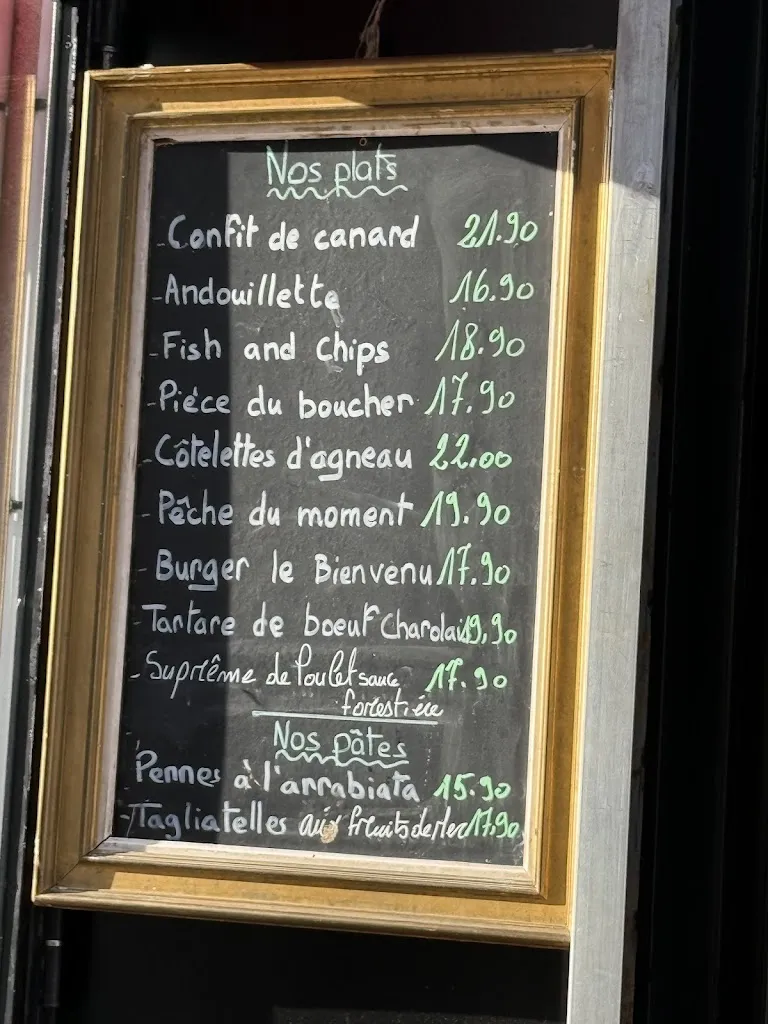 Nos plats
- Confit de canard 21.90
- Andouillette 16.90
- Fish and Chips 18.90
- Pièce du boucher 17.90
- Côtelettes d'agneau 22.00
- Pêche du moment 19.90
- Burger le Bienvenu 17.90
- Tartare de boeuf Charolais 19,90
- Suprême de Poulet sauce 17.90
forestière
Nos pâtes
Pennes à l'arrabiata 15.90
- Tagliatelles aux fruits de Mer 17.90